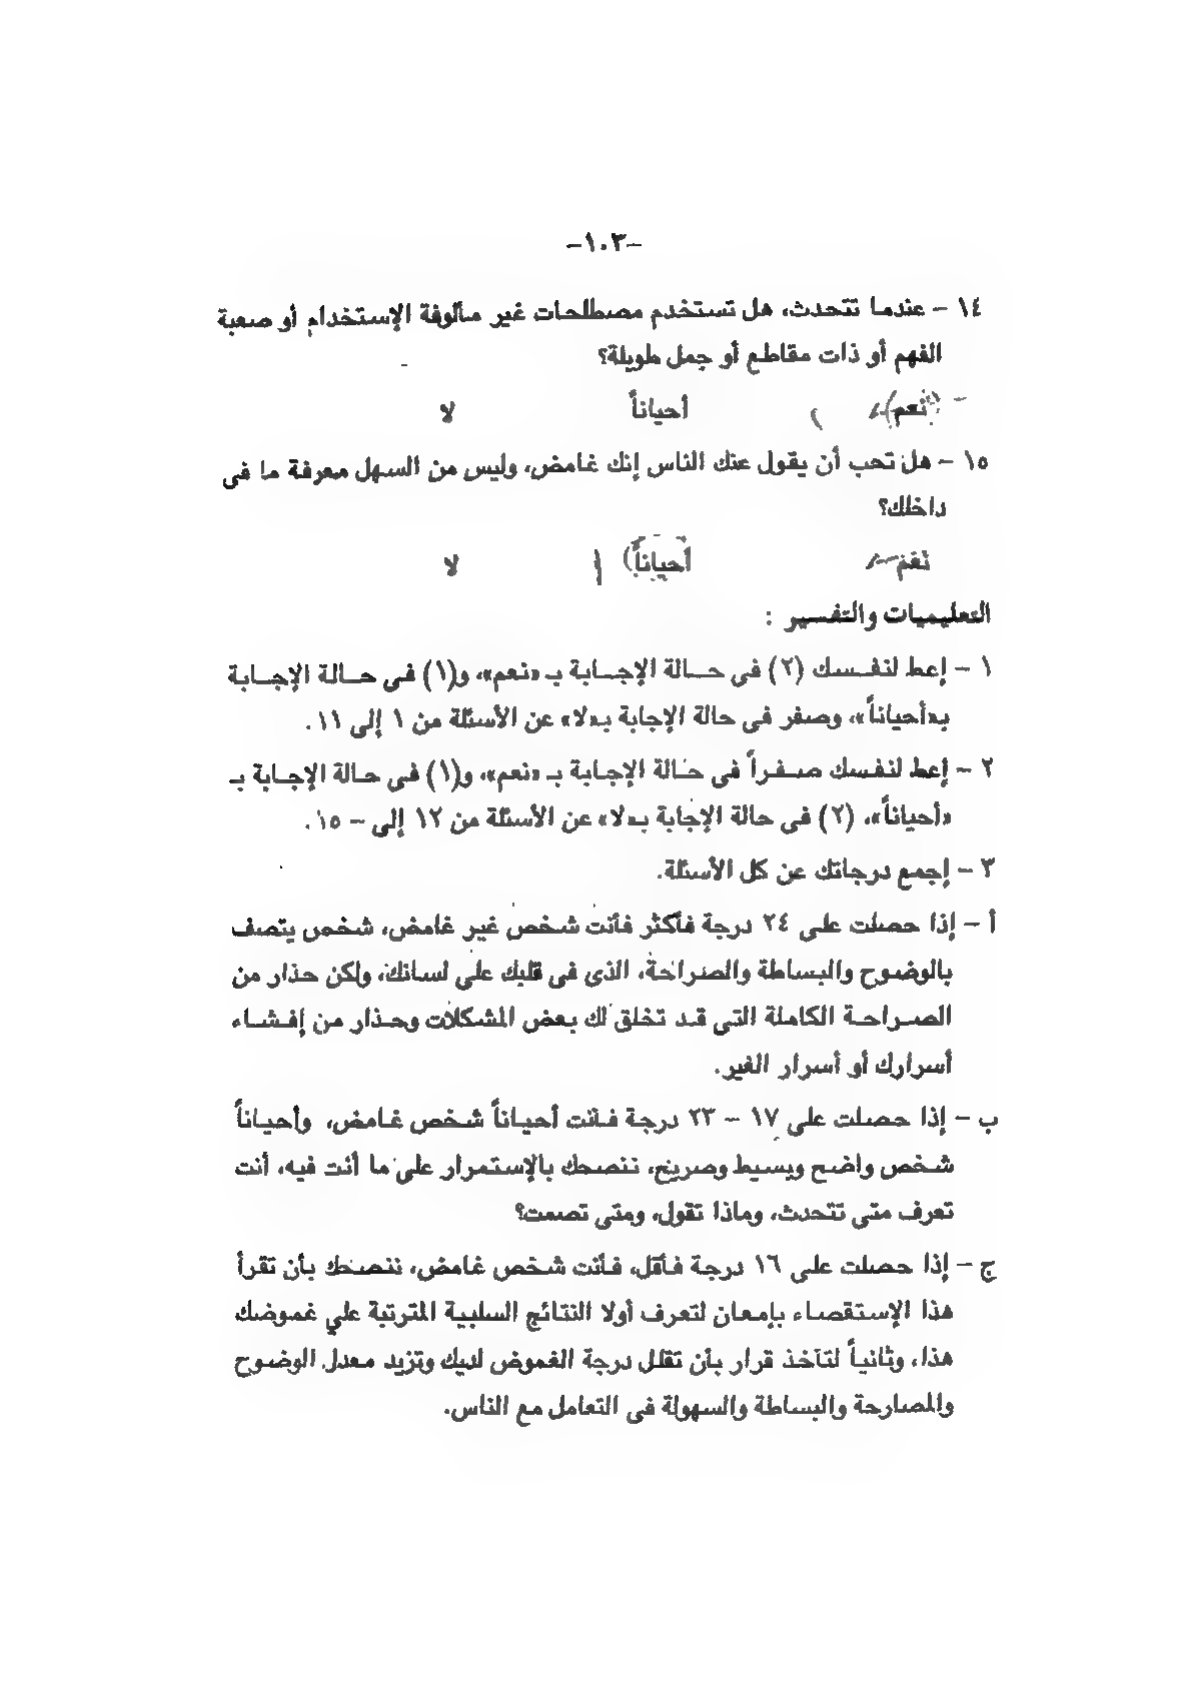 -١٠٣-
١٤ - عندما تتحدث، هل تستخدم مصطلحات غير مألوفة الإستخدام أو صعبة
الفهم أو ذات مقاطع أو جمل طويلة؟
نعم أحياناً لا
١٥ - هل تحب أن يقول عنك الناس إنك غامض، وليس من السهل معرفة ما فى
داخلك؟
نعم أحياناً لا
التعليميات والتفسير :
١ - إعط لنفسك (٢) فى حالة الإجابة بـ «نعم»، و(١) فى حالة الإجابة
بـ«أحياناً»، وصفر فى حالة الإجابة بـ«لا» عن الأسئلة من ١ إلى ١١.
٢ - إعط لنفسك صفراً فى حالة الإجابة بـ «نعم»، و(١) فى حالة الإجابة بـ
«أحياناً»، (٢) فى حالة الإجابة بـ«لا» عن الأسئلة من ١٢ إلى - ١٥.
٣ - إجمع درجاتك عن كل الأسئلة.
أ - إذا حصلت على ٢٤ درجة فأكثر فأنت شخص غير غامض، شخص يتصف
بالوضوح والبساطة والصراحة، الذى فى قلبك على لسانك، ولكن حذار من
الصراحة الكاملة التى قد تخلق لك بعض المشكلات وحذار من إفشاء
أسرارك أو أسرار الغير.
ب - إذا حصلت على ١٧ - ٢٣ درجة فانت أحياناً شخص غامض، وأحياناً
شخص واضح وبسيط وصريح، ننصحك بالإستمرار على ما أنت فيه، أنت
تعرف متى تتحدث، وماذا تقول، ومتى تصمت؟
ج - إذا حصلت على ١٦ درجة فأقل، فأنت شخص غامض، ننصحك بأن تقرأ
هذا الإستقصاء بإمعان لتعرف أولا النتائج السلبية المترتبة علي غموضك
هذا، وثانياً لتأخذ قرار بأن تقلل درجة الغموض لديك وتزيد معدل الوضوح
والمصارحة والبساطة والسهولة فى التعامل مع الناس.